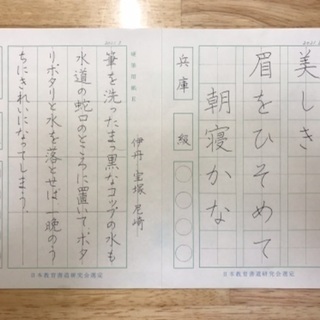 美しき
眉をひそめて
朝寝かな
兵庫
級
日本教育書道研究会選定
伊丹 宝塚 尼崎
筆を洗ったまっ黒なコップの水も
水道の蛇口のところに置いて、ポタ
リポタリと水を落とせば一晩のう
ちにきれいになってしまう。
日本教育書道研究会選定